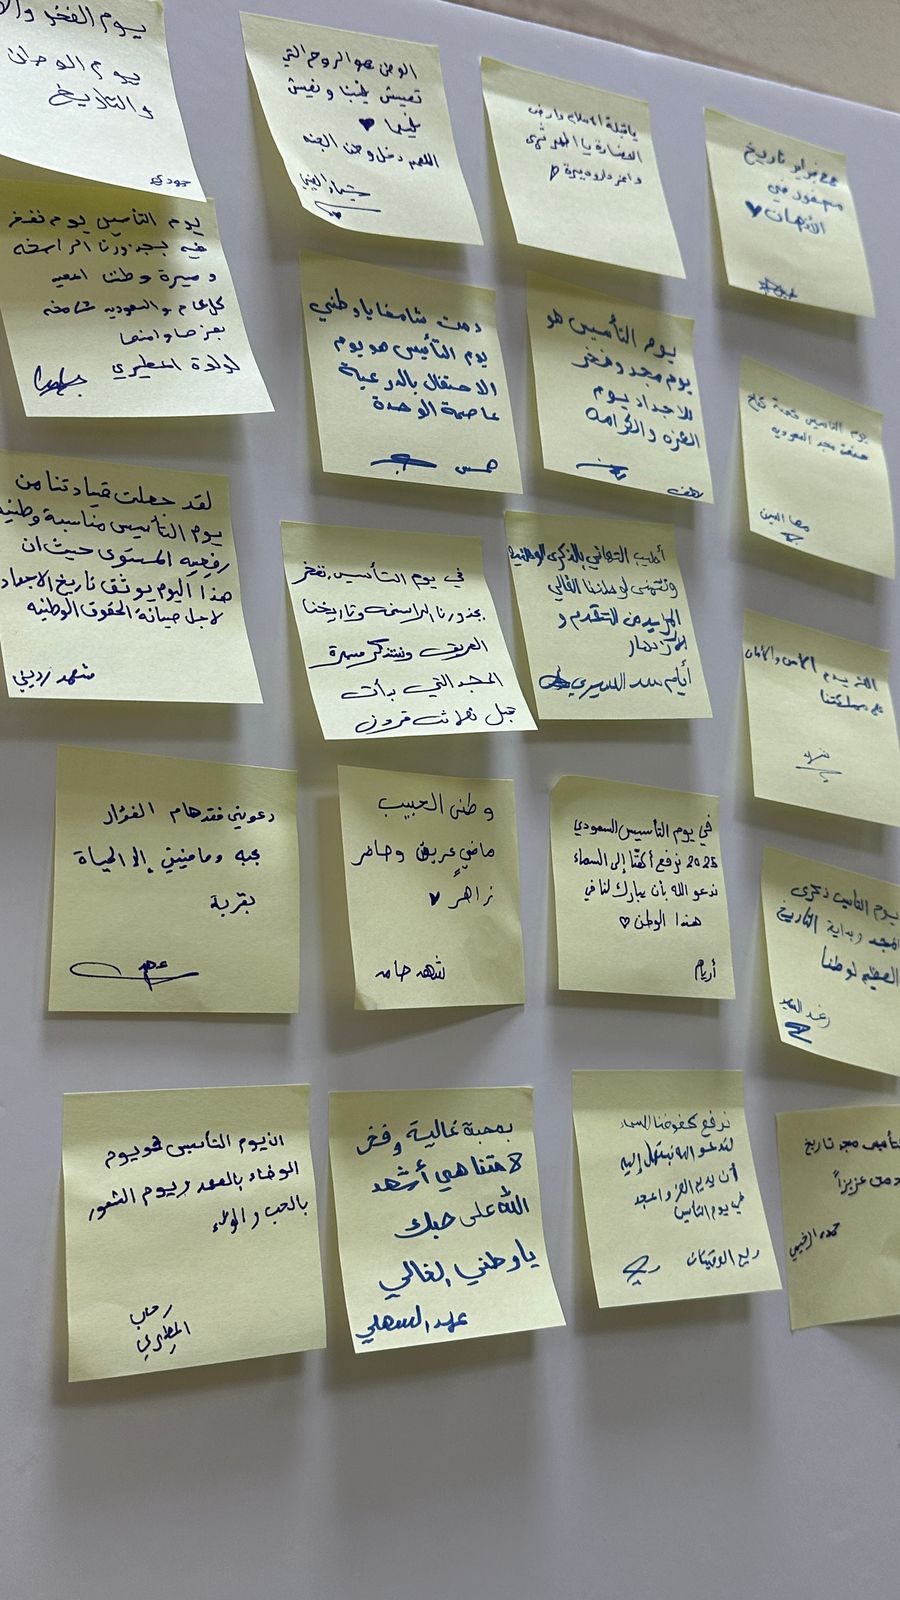 يوم الفخر
يوم الوطن
والتاريخ
الوطن هو الروح التي
تعيش فينا ونعيش
فيها ♥
اللهم دخل وطن الجنه
ياقبلة الاسلام وارض
الحضارة يا
22 فبراير تاريخ
محفور في
الأذهان ♥
يوم التأسيس يوم نفخر
فيه بجذورنا الراسخه
و مسيرة وطننا المجيد
كل عام والسعوديه شامخه
بعزها وامنها
لولوة المطيري
دمت شامخا يا وطني
يوم التأسيس هو يوم
الاحتفال بالدرعية
عاصمة الوحدة
يوم التأسيس هو
يوم مجد وفخر
للاجداد يوم
العزه والكرامه
يوم التأسيس قصة
مجد السعوديه
مها
لقد جعلت قيادتنا من
يوم التأسيس مناسبة وطنيه
رفيعه المستوى حيث ان
هذا اليوم يوثق تاريخ الاجداد
لاجل صيانة الحقوق الوطنيه
في يوم التأسيس نفخر
بجذورنا الراسخه وتاريخنا
العريق ونتذكر مسيرة
المجد التي بدأت
قبل ثلاث قرون
أطيب التهاني بالذكرى الوطنية
ونتمنى لوطننا الغالي
المزيد من التقدم و
الازدهار
أيام سعد
الله يديم الأمن والأمان
على مملكتنا
دعوني فقد هام الفؤاد
بحبه وما منيتي إلا الحياة
بقربة
عهد
وطني الحبيب
ماضي عريق وحاضر
زاهر ♥
شهد حامد
في يوم التأسيس السعودي
2025 نرفع أكفنا إلى السماء
ندعو الله بأن يبارك لنا في
هذا الوطن ♡
أريام
يوم التأسيس ذكرى
المجد وبداية التاريخ
العظيم لوطننا
رغد
اليوم التأسيس هو يوم
الوفاء بالعهد ويوم الشعور
بالحب و الولاء
رحاب
المطيري
بمحبة غالية وفخر
لا متناهي أشهد
الله على حبك
يا وطني الغالي
عهد السهلي
نرفع كفوفنا للسماء
لندعو الله نبتهل إليه
أن يديم العز والمجد
في يوم التأسيس
ريم
مجد تاريخ
عزيزاً